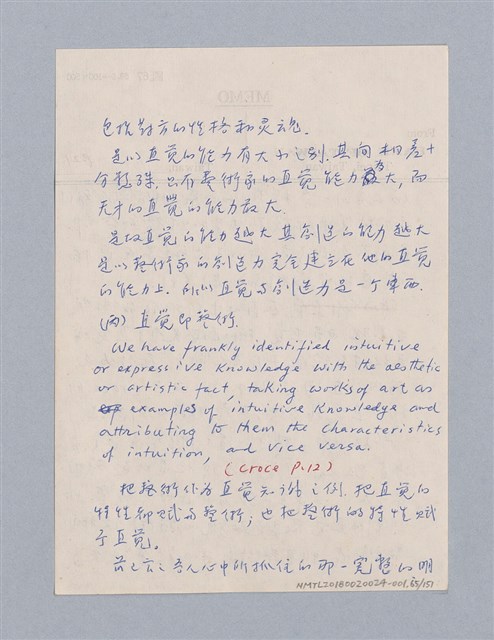 包括對方的性格和灵魂.
是以直覚的能力有大小之别. 其间相差十
分懸殊. 只有藝術家的直覚能力最为大, 而
天才的直覺的能力最大.
是故直覚的能力越大其創造的能力越大
是以藝術家的創造力完全建立在他的直覚
的能力上. 所以直覚与創造力是一个東西.
(两) 直覚即藝術.
We have frankly identified intuitive
or expressive knowledge with the aesthetic
or artistic fact, taking works of art as
examples of intuitive knowledge and
attributing to them the characteristics
of intuition, and vice versa.
(Croce P.12)
把藝術作为直覚知識之例. 把直覚的
特性卻賦与藝術; 也把藝術的特性賦
予直覚。
言之吾人心中所抓住的那一完整的明
NMTL20180020024-001.65/151
MEMO